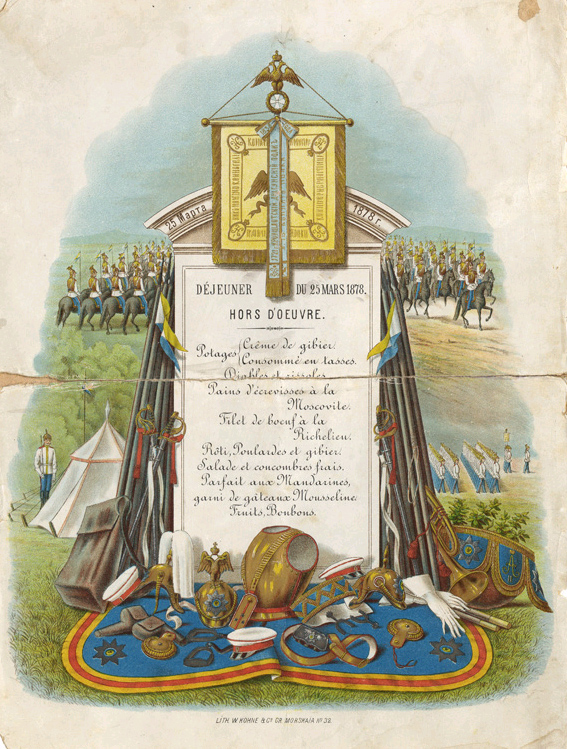 25 Марта
1878 г.
DÉJEUNER DU 25 MARS 1878.
HORS D'OEUVRE.
Potages Crème de gibier.
Consommé en tasses.
Diables et
Pains d'écrevisses à la
Moscovite.
Filet de boeuf à la
Richelieu.
Rôti, Poulardes et gibier.
Salade et concombres frais.
Parfait aux Mandarines,
garni de gâteaux Mousseline.
Fruits, Bonbons.
LITH. W. ROHNE & Cº GR. MORSKAJA Nº 32.